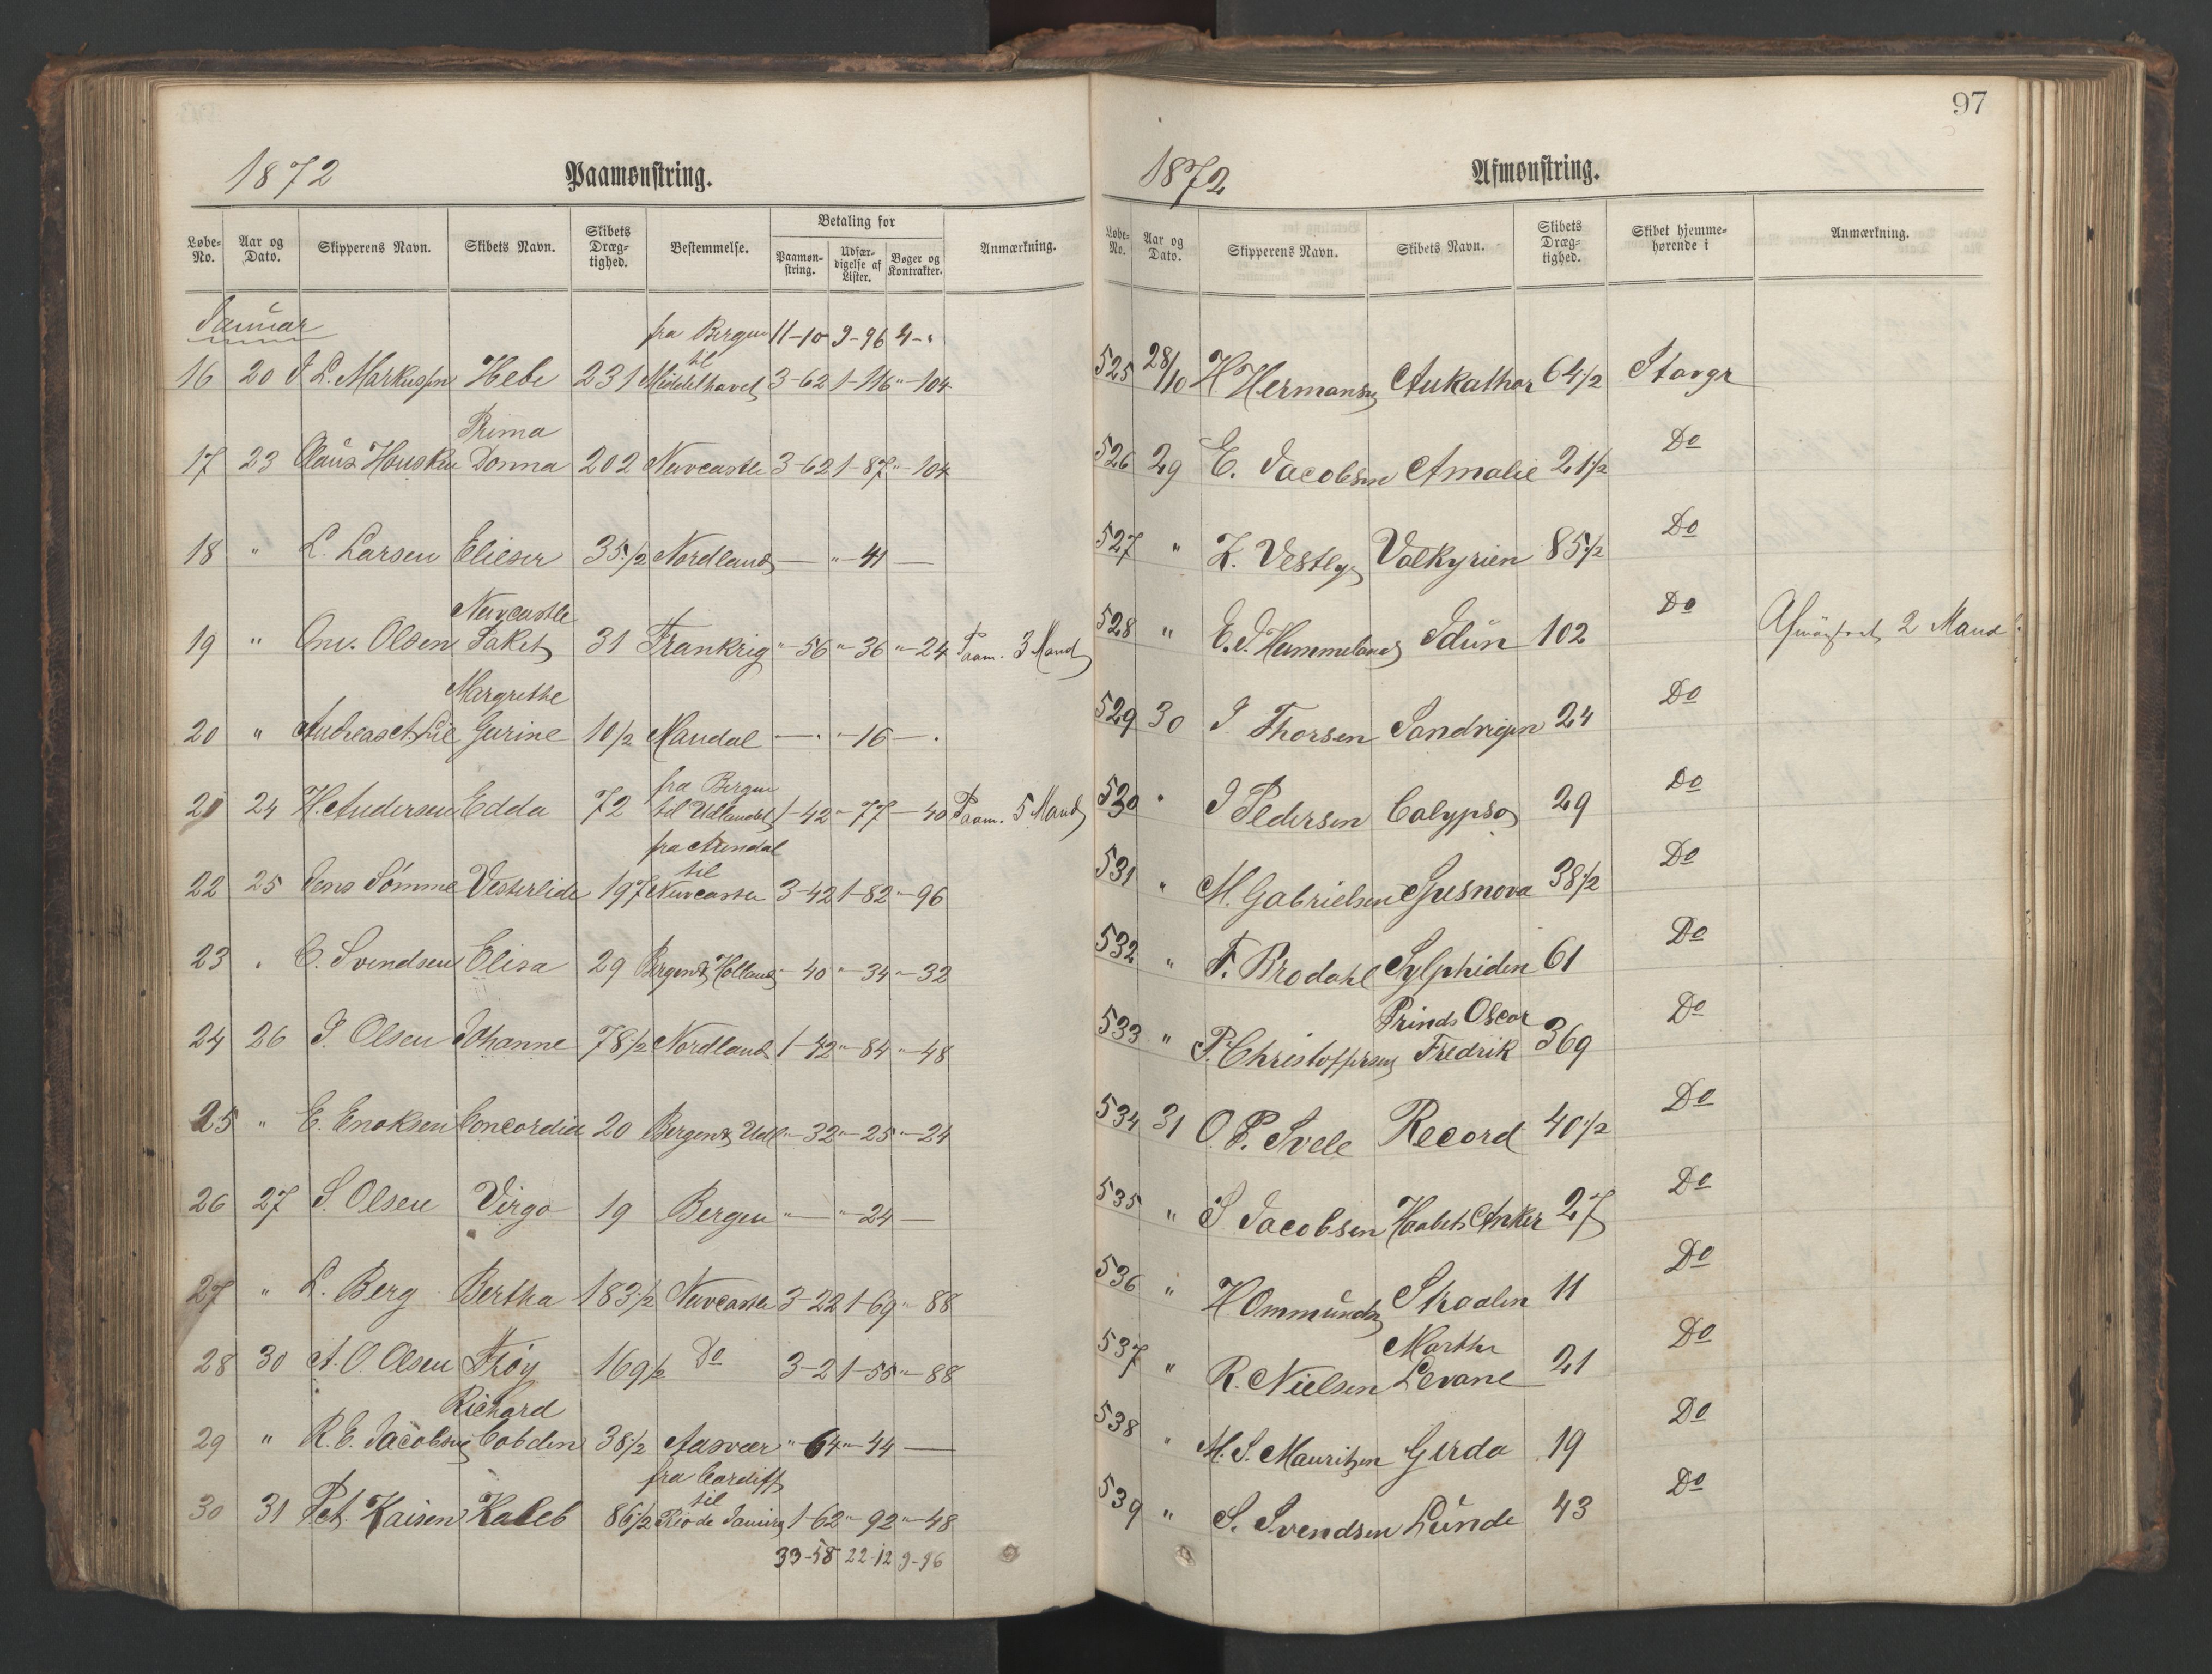 97
1872 Paamønstring.
Løbe-No. Aar og Dato. Skipperens Navn. Skibets Navn. Skibets Dræg-tighed. Bestemmelse. Betaling for Paamøn-string. Udfær-digelse af Lister. Bøger og Kontrakter. Anmærkning.
Januar fra Bergen 11-10 9-96 4-"
til
16 20 J L. Markussen Hebe 231 Middelhavet 3-62 1-116 "-104
Prima
17 23 Claus Housken Donna 202 Newcastle 3-62 1-87 "-104
18 " L. Larsen Elieser 35 1/2 Nordland — "-41 —
Newcastle
19 " Olsen Paket 31 Frankrig "-56 "-36 "-24 Paam. 3 Mand
Margrethe
20 " Andreas Gurine 10 1/2 Mandal — "-16 —
fra Bergen
21 24 H. Andersen Edda 72 til Udlandet 1-42 "-77 "-40 Paam. 5 Mand
fra Arendal
til
22 25 Jens Sømme Vesterlide 197 Newcastle 3-42 1-82 "-96
23 " C. Svendsen Elisa 29 Bergen & Holland "-40 "-34 "-32
24 26 J. Olsen Johanne 78 1/2 Nordland 1-42 "-84 "-48
25 " E. Enoksen Concordia 20 Bergen & Udl "-32 "-25 "-24
26 27 S. Olsen Virgo 19 Bergen "— "-24 —
27 " L. Berg Bertha 183 1/2 Newcastle 3-22 1-69 "-88
28 30 A. O. Olsen Frøy 169 1/2 Do 3-2 1-55 "-88
Richard
29 " R. E. Jacobsen Cobden 38 1/2 Aasvær "-64 "-44 —
fra Cardiff
til
30 31 Pet. Kaisen Kaleb 86 1/2 Rio de Janeiro 1-62 "-92 "-48
33-58 22-12 9-96
1872 Afmønstring.
Løbe-No. Aar og Dato. Skipperens Navn. Skibets Navn. Skibets Dræg-tighed. Skibet hjemme-hørende i Anmærkning.
525 28/10 H. Hermansen Aukathor 64 1/2 Stavgr
526 29 E. Jacobsen Amalie 21 1/2 Do
527 " Z. Vestly Valkyrien 85 1/2 Do
528 " E. J. Hammeland Idun 102 Do Afmønstret 2 Mand
529 30 J Thorsen Sandvigen 24 Do
530 " J Pedersen Calypso 29 Do
531 " M. Gabrielsen Gusnova 38 1/2 Do
532 " F. Brodahl Sylphiden 61 Do
Prinds Oscar
533 " P. Christoffersen Fredrik 369 Do
534 31 O. P. Svele Record 40 1/2 Do
535 " S Jacobsen Haabets Anker 27 Do
536 " H Ommundsen Straalen 11 Do
Marthe
537 " R. Nielsen Levane 21 Do
538 " M. S. Mauritzen Gerda 19 Do
539 " S. Svendsen Lunde 43 Do